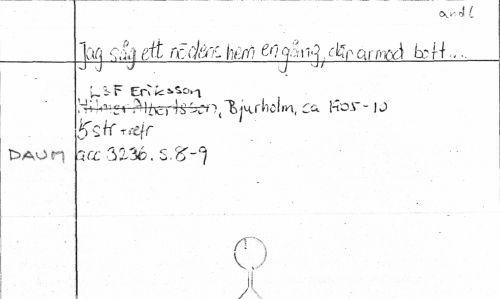 andl
Jag såg ett nödens hem en gång, där armod bott...
L & F Eriksson
Hilmer Albertsson, Bjurholm, ca 1905-10
5 str + refr
DAUM acc 3236. s. 8-9